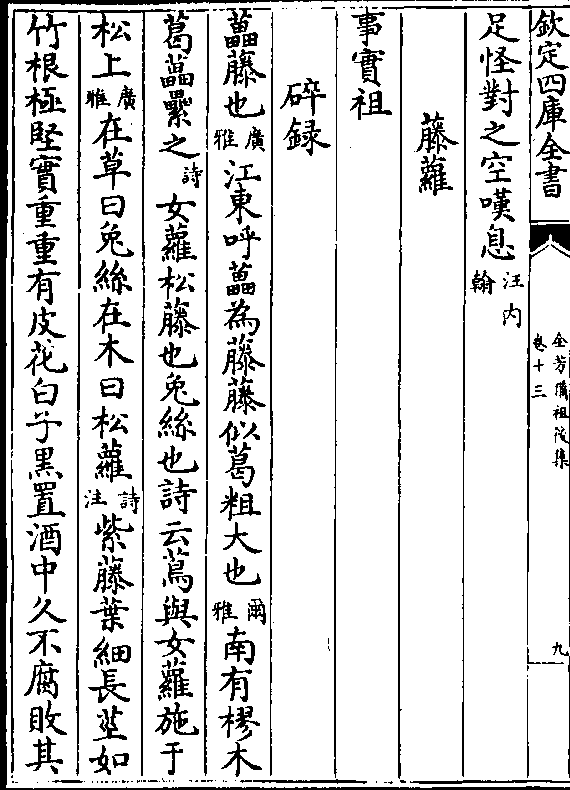 欽定四庫全書
全芳備祖後集
卷十三
九
足怪對之空嘆息汪内翰
藤蘿
事實祖
碎録
藟藤也廣雅江東呼藟為藤藤似葛粗大也爾雅南有樛木
葛藟纍之詩女蘿松藤也兔絲也詩云蔦與女蘿施于
松上廣雅在草曰兔絲在木曰松蘿詩注紫藤葉細長莖如
竹根極堅實重重有皮花白子黒置酒中久不腐敗其